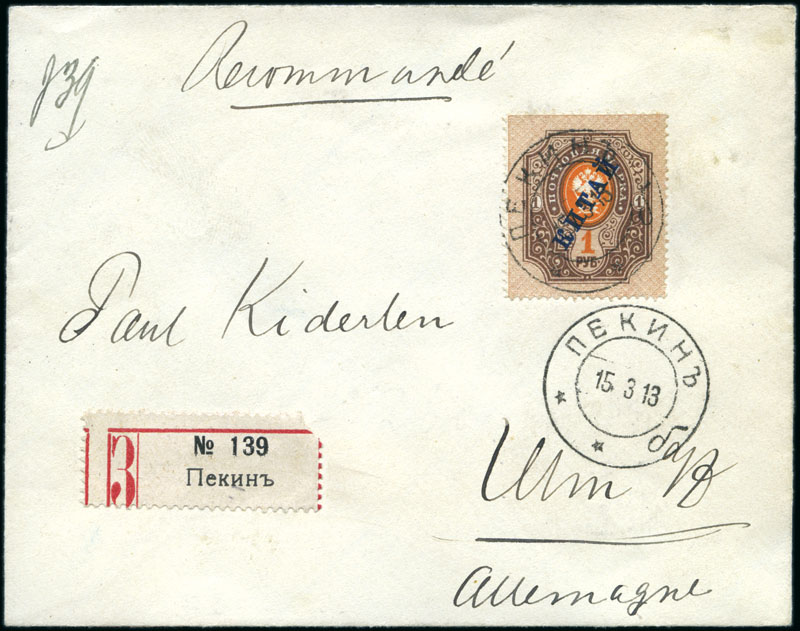 Recommandé
739
ПОЧТОВАЯ МАРКА
КИТАЙ
1 1
1
РУБ
ПЕКИНЪ
Paul Kiderlen
ПЕКИНЪ
15 3 13
№ 139
Пекинъ
З
Ulm
Allemagne